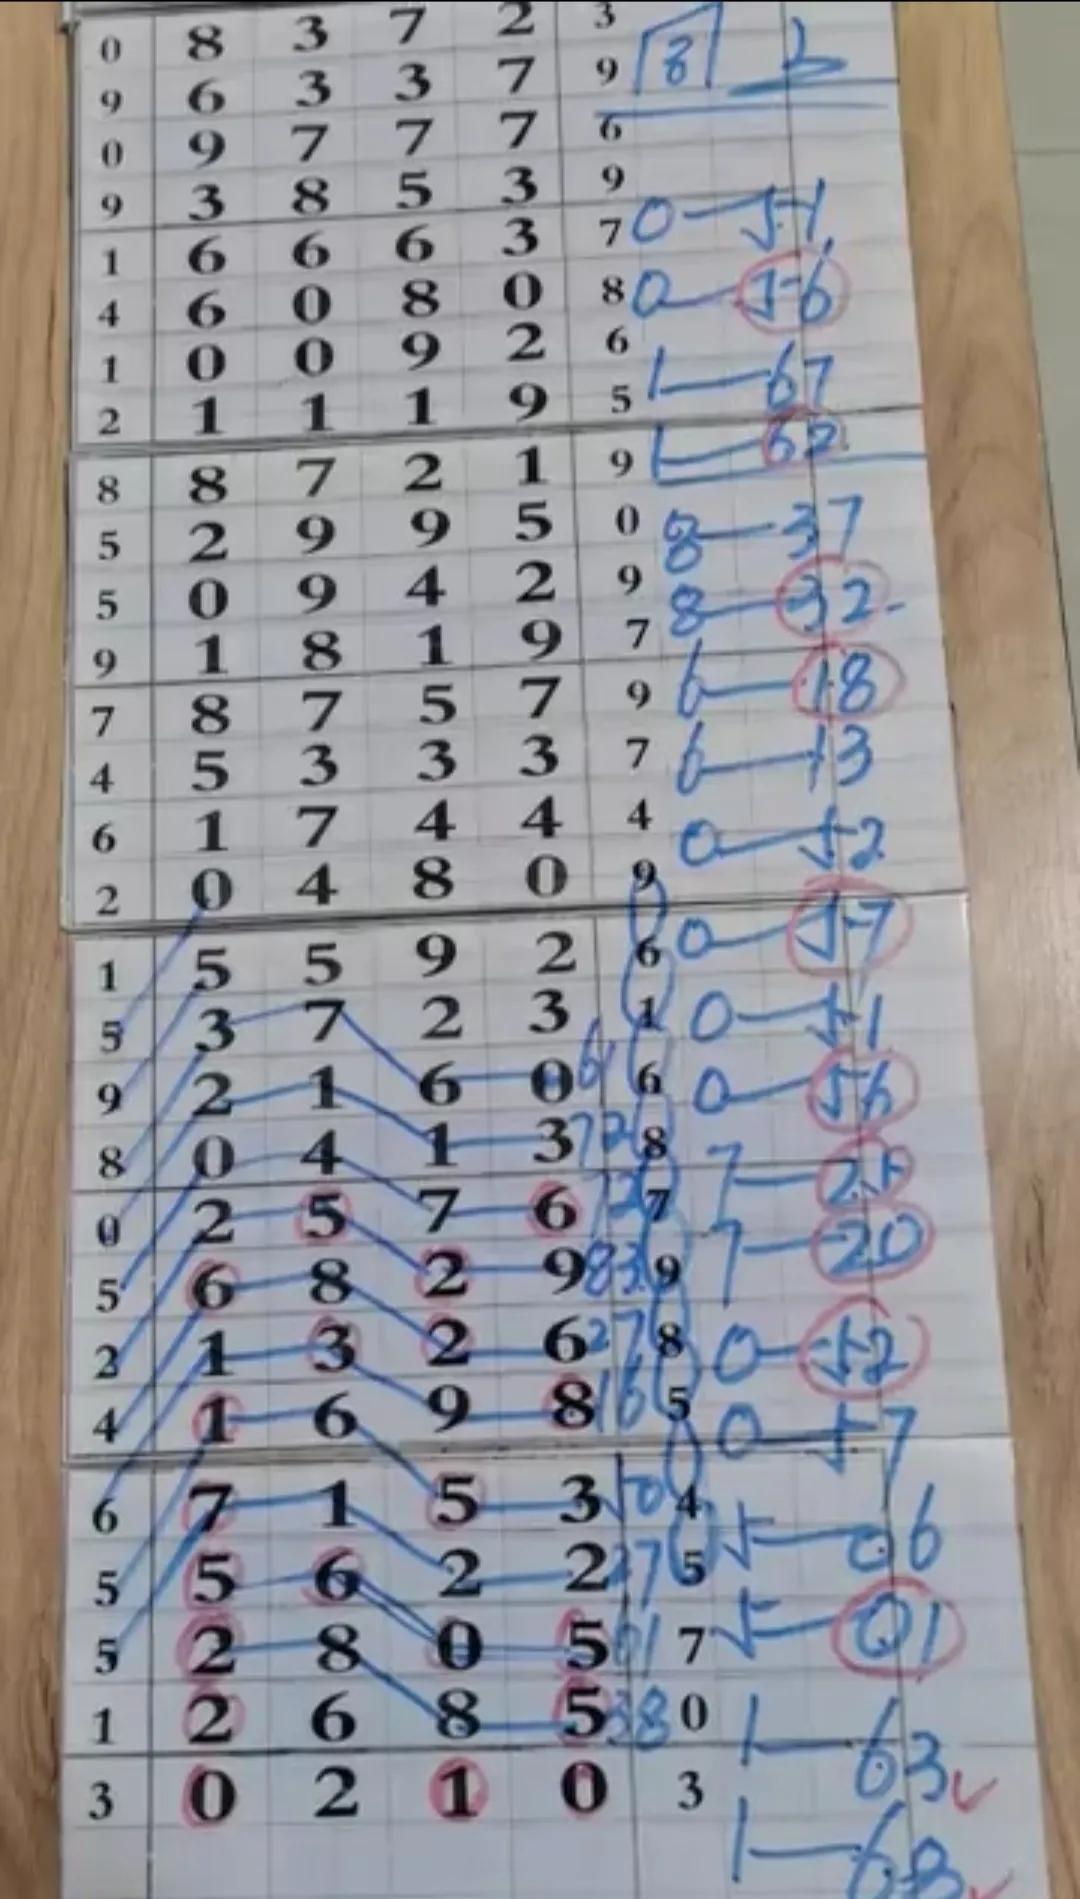 0 8 3 7 2 3 3 2
9 6 3 3 7 9
0 9 7 7 7 6
9 3 8 5 3 9 0-51
1 6 6 6 3 7
4 6 0 8 0 8 0-56
1 0 0 9 2 6 1-67
2 1 1 1 9 5
8 8 7 2 1 9 1-62
5 2 9 9 5 0 8-37
5 0 9 4 2 9 8-32-
9 1 8 1 9 7
7 8 7 5 7 9 6-18
4 5 3 3 3 7 6-13
6 1 7 4 4 4 0-52
2 0 4 8 0 9
1 5 5 9 2 6 0-57
5 3 7 2 3 1 0-51
9 2 1 6 0 61 6 0-56
8 0 4 1 3 72 8 7-25
0 2 5 7 6 7
5 6 8 2 9 83 9 7-20
2 1 3 2 6 27 8 0-52
4 1 6 9 8 16 5 0-57
6 7 1 5 3 50 4 5-06
5 5 6 2 2 27 5
5 2 8 0 5 61 7 5-01
1 2 6 8 5 38 0 1-63
3 0 2 1 0 3
1-68